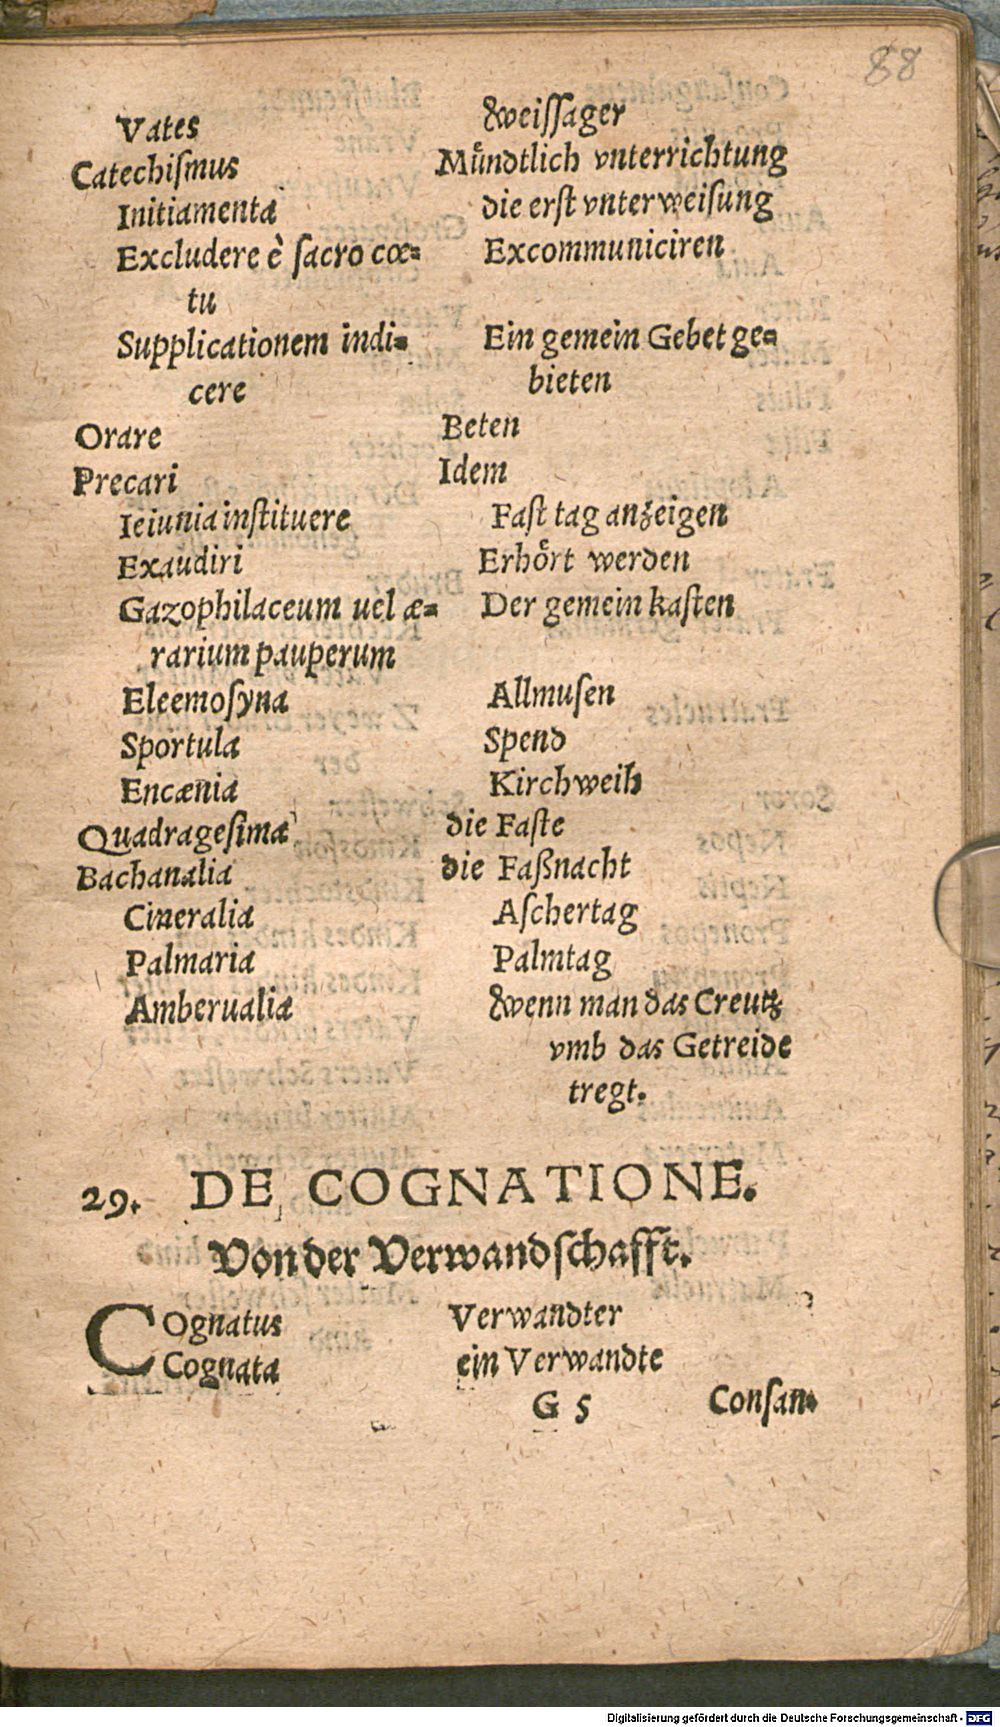 88
Vates Weiſſager
Catechiſmus Mündtlich vnterrichtung
Initiamenta die erſt vnterweiſung
Excludere è ſacro cœ= Excommuniciren
tu
Supplicationem indi= Ein gemein Gebet ge=
cere bieten
Orare Beten
Precari Idem
Ieiunia inſtituere Faſt tag anzeigen
Exaudiri Erhört werden
Gazophilaceum uel æ= Der gemein kaſten
rarium pauperum
Eleemoſyna Allmuſen
Sportula Spend
Encænia Kirchweih
Quadrageſima die Faſte
Bachanalia die Faßnacht
Cineralia Aſchertag
Palmaria Palmtag
Amberualia Wenn man das Creutz
vmb das Getreide
tregt.
29. DE COGNATIONE.
Von der Verwandſchafft.
COgnatus Verwandter
Cognata ein Verwandte
G 5 Conſan=
Digitalisierung gefördert durch die Deutsche Forschungsgemeinschaft - DFG